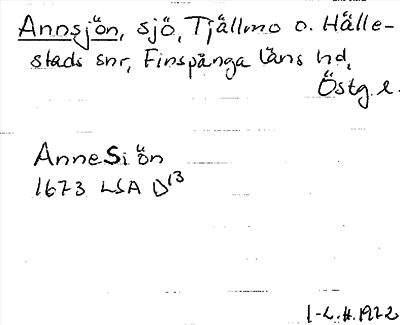 Annsjön, sjö, Tjällmo o. Hälle-
stads snr, Finspånga läns hd,
Östg. l.
AnneSiön
1673 LSA D13
1-L.H. 1972